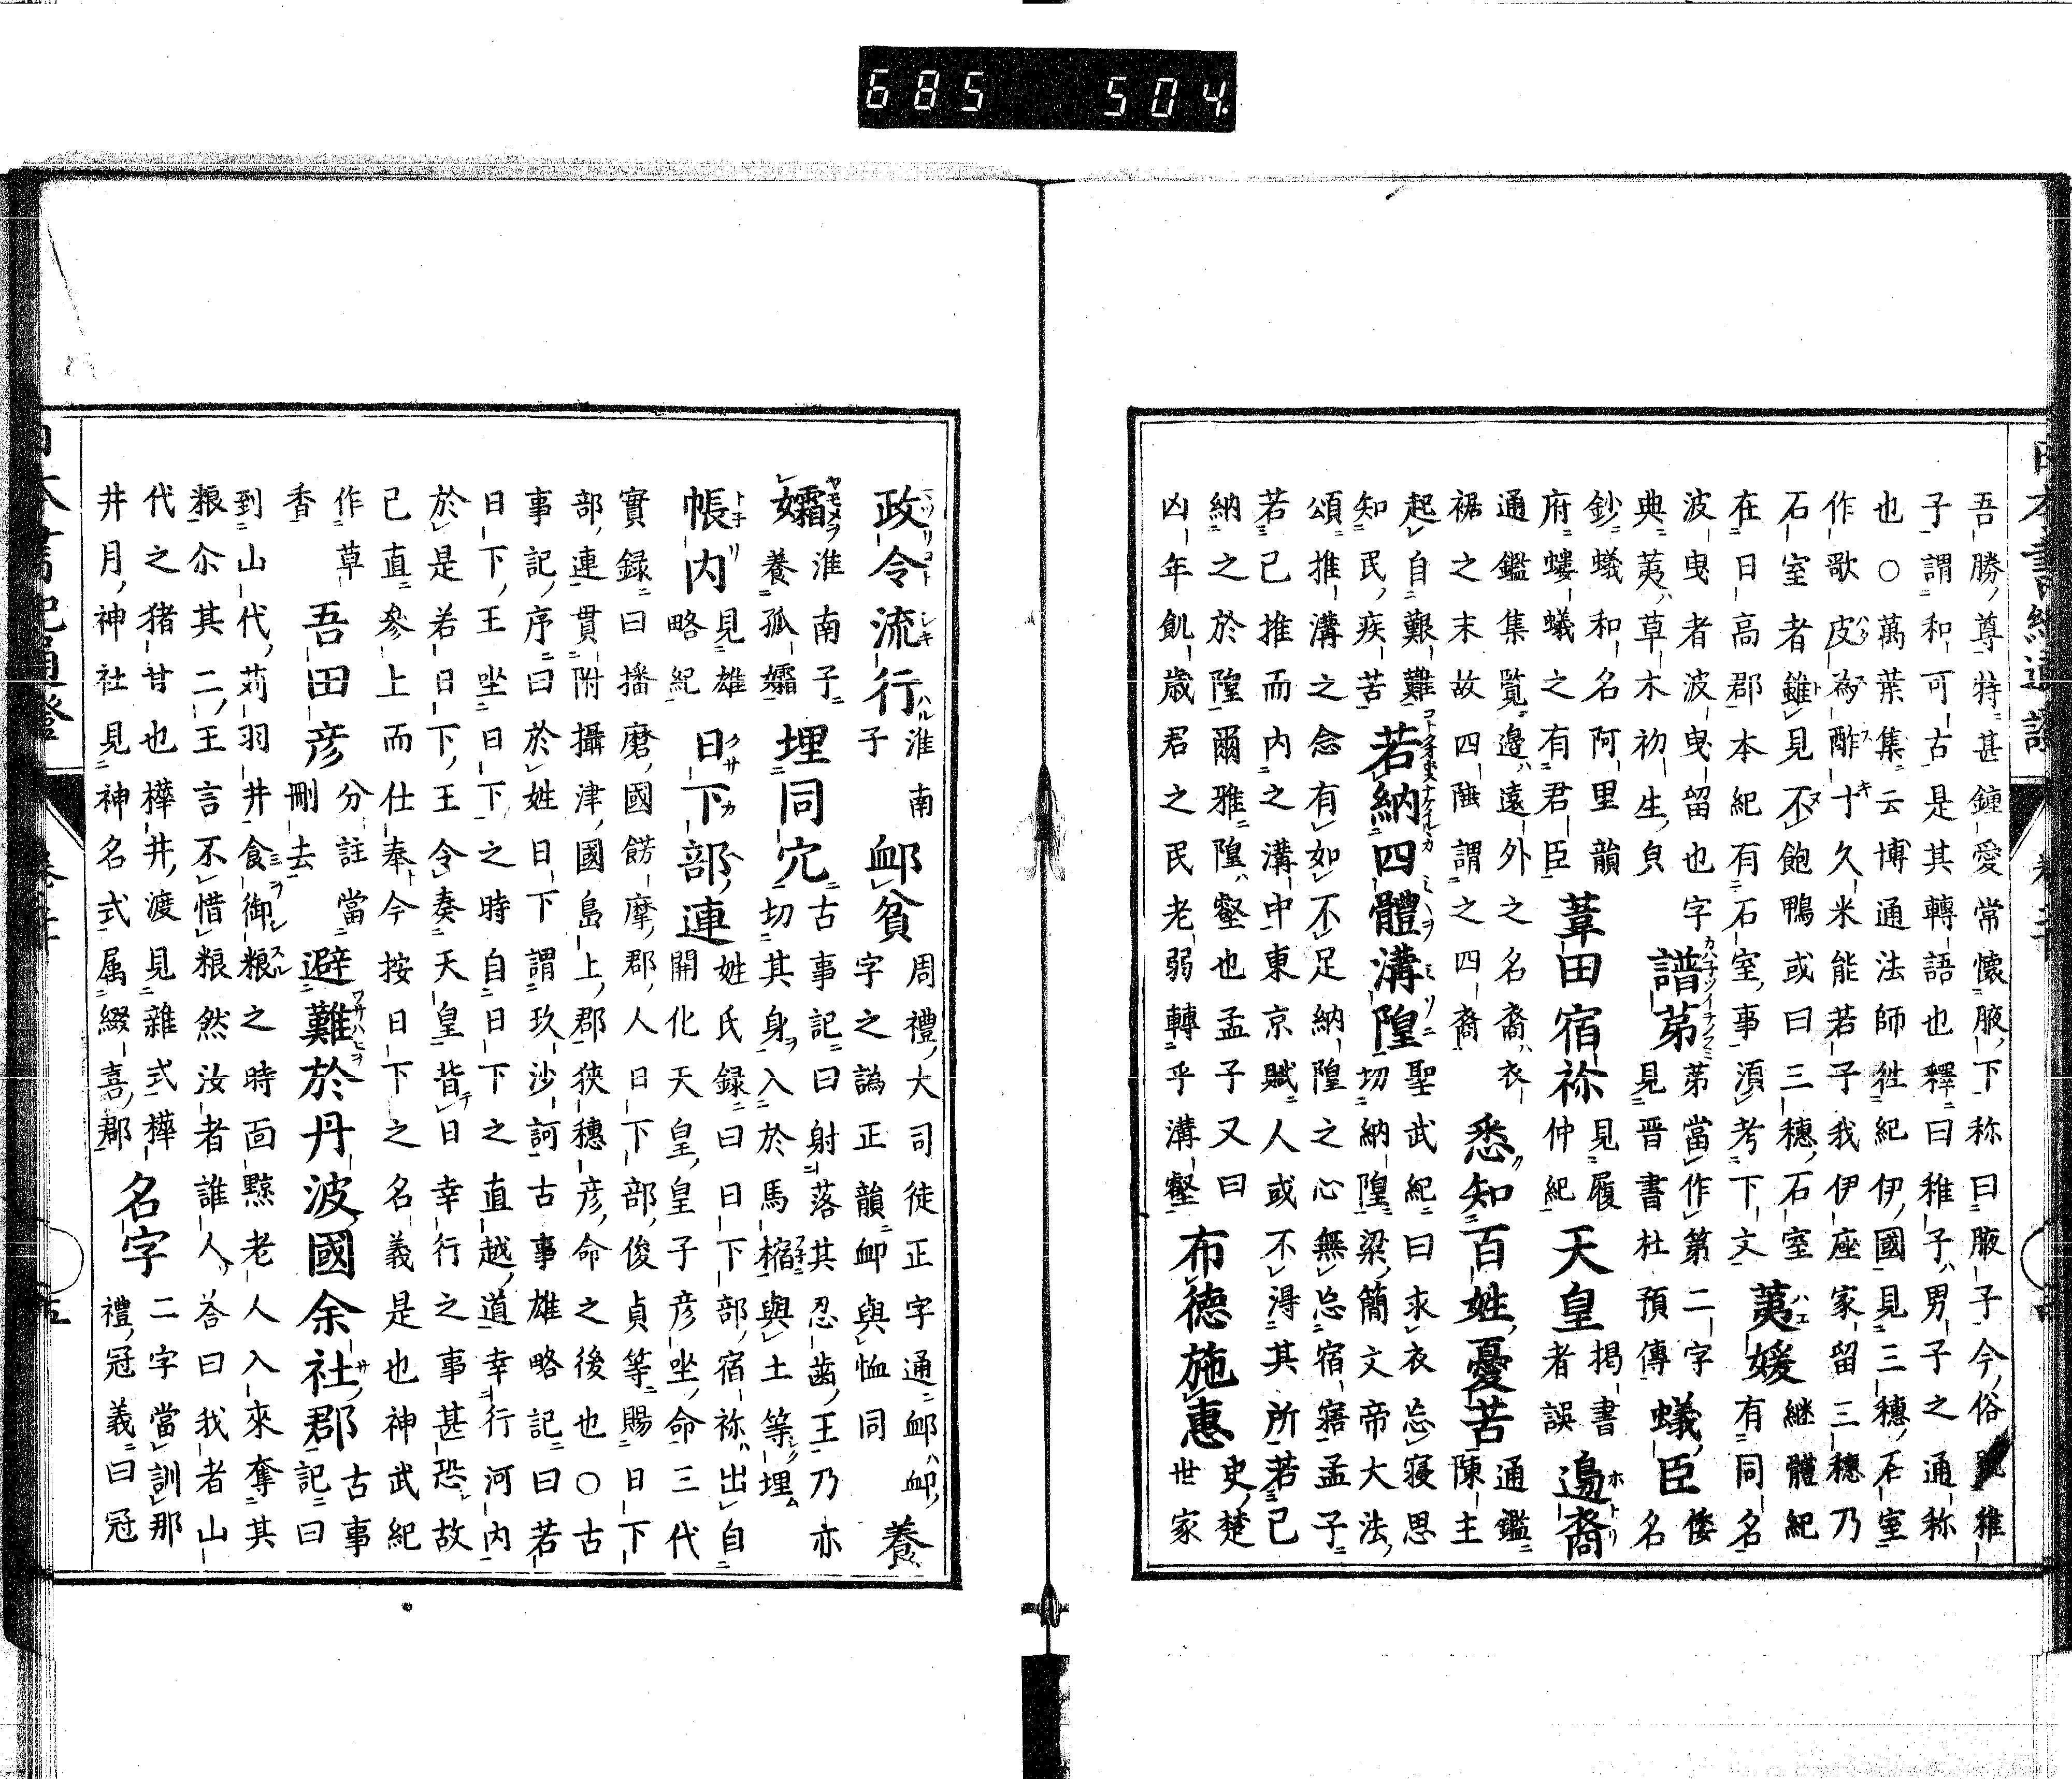 685 504
吾勝尊特甚鍾愛常懷腋下称曰腋子今俗 稚
子謂和可古是其轉語也釋曰稚子男子之通称
也○萬葉集云博通法師徃紀伊國見三穗石室
作歌皮為酢寸久米能若子我伊座家留三穗乃
石室者雖見不飽鴨或曰三穗石室 継體紀
在日高郡本紀有石室事湏考下文 荑媛 有同名
波曳者波曳留也字 譜苐 苐當作第二字 蟻臣 倭
典荑草木初生貞 見晋書杜預傳 名
鈔蟻和名阿里韻 葦田宿祢 見履 天皇 揭書 邉裔
府螻蟻之有君臣 仲紀 者誤
通鑑集覽邉遠外之名裔衣 悉知百姓憂苦 通鑑
裾之末故四陲謂之四裔 陳主
起自艱難 若納四體溝隍 聖武紀曰求衣忘寝思
知民疾苦 切納隍梁簡文帝大法
頌推溝之念有如不足納隍之心無忘宿寤孟子
若己推而内之溝中東京賦人或不得其所若己
納之於隍爾雅隍壑也孟子又曰 布德施惠 史楚
凶年飢歳君之民老弱轉乎溝壑 世家
政令流行 淮南子 䘏貧 周禮大司徒正字通䘏卹 養
字之譌正韻卹與恤同
孀 淮南子 埋同穴 古事記曰射落其忍歯王乃亦
養孤孀 切其身入於馬樎與土等埋
帳内 見雄 日下部連 姓氏録曰日下部宿祢出自
略紀 開化天皇皇子彦坐命三代
實録曰播磨國餝摩郡人日下部俊貞等賜日下
部連貫附攝津國島上郡狹穗彦命之後也○古
事記序曰於姓日下謂玖沙訶古事雄略記曰若
日下王坐日下之時自日下之直越道幸行河内
於是若日下王令奏天皇背日幸行之事甚恐故
己直參上而仕奉今按日下之名義是也神武紀
作草 吾田彦 分註當 避難於丹波國余社郡 古事
香 刪去 記曰
到山代苅羽井食御粮之時面黥老人入來奪其
粮尒其二王言不惜粮然汝者誰人荅曰我者山
代之猪甘也樺井渡見雜式樺 名字 二字當訓那
井月神社見神名式属綴喜郡 禮冠義曰冠